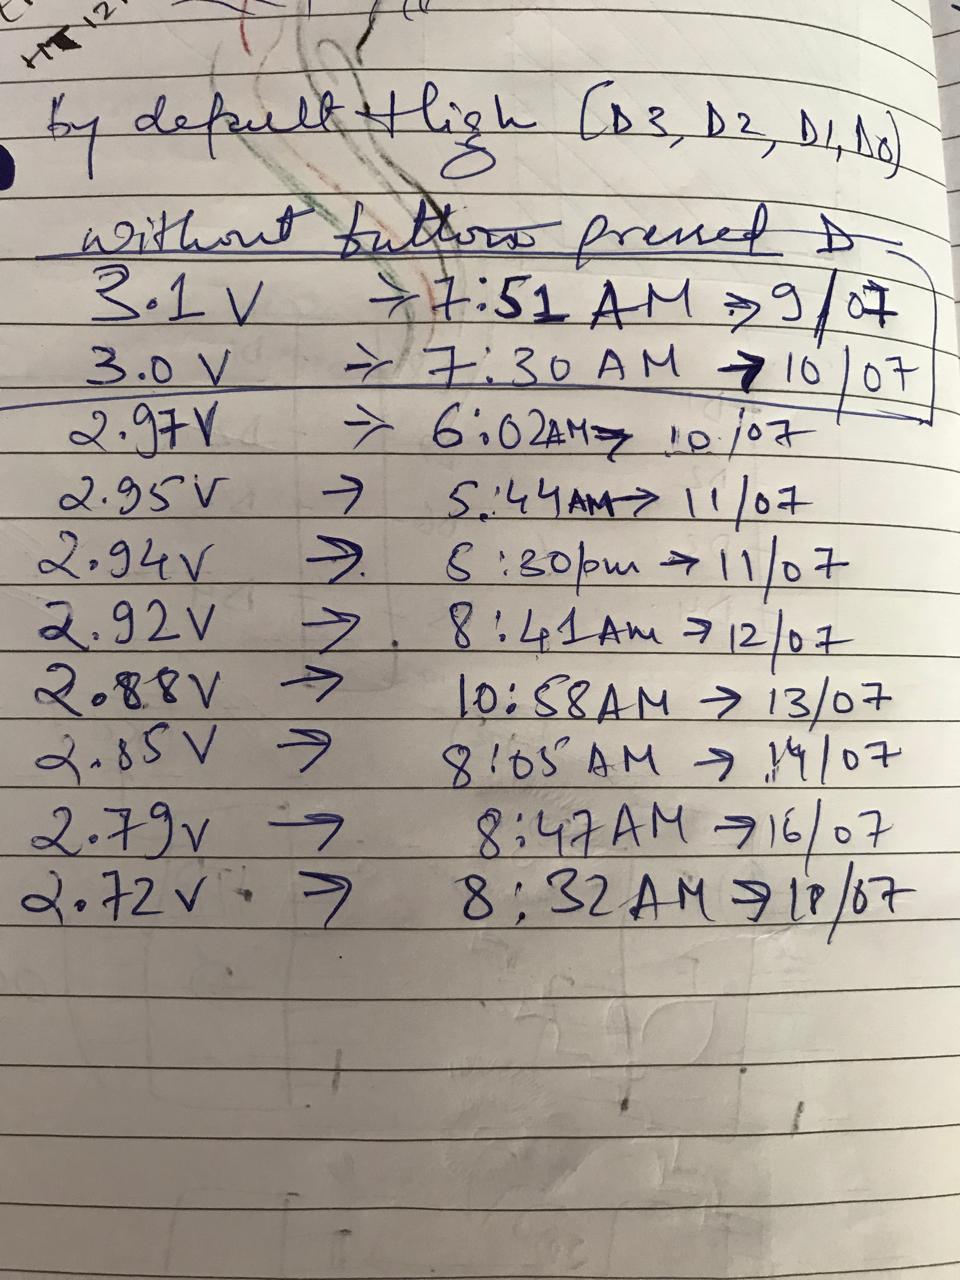 HT 12
by default High (D3, D2, D1, D0)
without button pressed D
3.1 V → 7:51 AM → 9/07
3.0 V → 7:30 AM → 10/07
2.97V → 6:02AM → 10/07
2.95V → 5:44AM → 11/07
2.94V → 5:30pm → 11/07
2.92V → 8:41Am → 12/07
2.88V → 10:58AM → 13/07
2.85V → 8:05 AM → 14/07
2.79v → 8:47AM → 16/07
2.72V → 8:32AM → 18/07